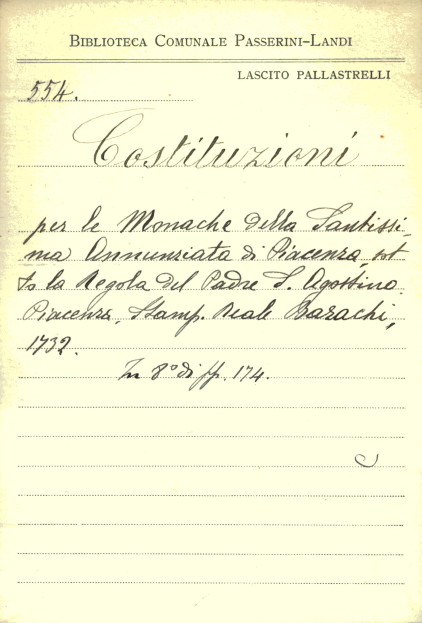 BIBLIOTECA COMUNALE PASSERINI-LANDI
LASCITO PALLASTRELLI
554.
Costituzioni
per le Monache della Santissi-
ma Annunziata di Piacenza, sot
to la Regola del Padre S. Agostino.
Piacenza, Stamp. Reale Bazachi,
1732.
In 8° di pp. 174.